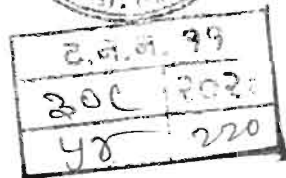 ट.न.न. ११
३०८ २०२०
५४ २२०